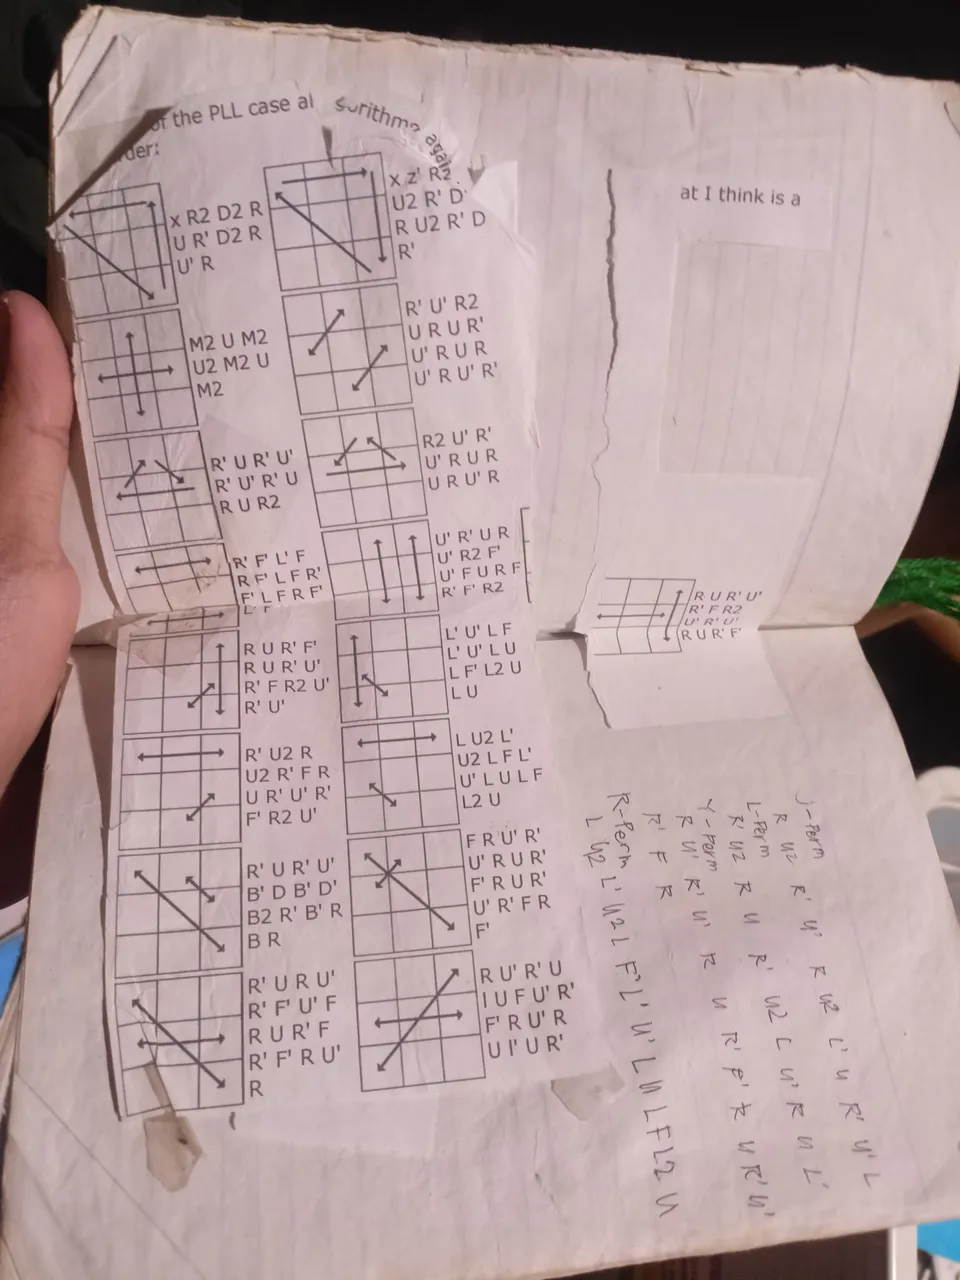 of the PLL case al
gorithms again
der:
x R2 D2 R
U R' D2 R
U' R
x z' R2
U2 R' D'
R U2 R' D
R'
M2 U M2
U2 M2 U
M2
R' U' R2
U R U R'
U' R U R
U' R U' R'
R' U R' U'
R' U' R' U
R U R2
R2 U' R'
U' R U R
U R U' R
R' F' L' F
R F' L F R'
F' L F R F'
L' F
U' R' U R
U' R2 F'
U' F U R F
R' F' R2
R U R' F'
R U R' U'
R' F R2 U'
R' U'
L' U' L F
L' U' L U
L F' L2 U
L U
R' U2 R
U2 R' F R
U R' U' R'
F' R2 U'
L U2 L'
U2 L F L'
U' L U L F
L2 U
R' U R' U'
B' D B' D'
B2 R' B' R
B R
F R U' R'
U' R U R'
F' R U R'
U' R' F R
F'
R' U R U'
R' F' U' F
R U R' F
R' F' R U'
R
R U' R' U
l U F U' R'
F' R U' R
U l' U R'
at I think is a
R U R' U'
R' F R2
U' R' U'
R U R' F'
J-Perm
R U2 R' U' R U2 L' U R' U' L
L-Perm
R' U2 R U R' U2 L U' R U L'
Y-Perm
R U' R' U' R U R' F' R U R' U'
R' F R
R-Perm
L U2 L' U2 L F' L' U' L U L F L2 U